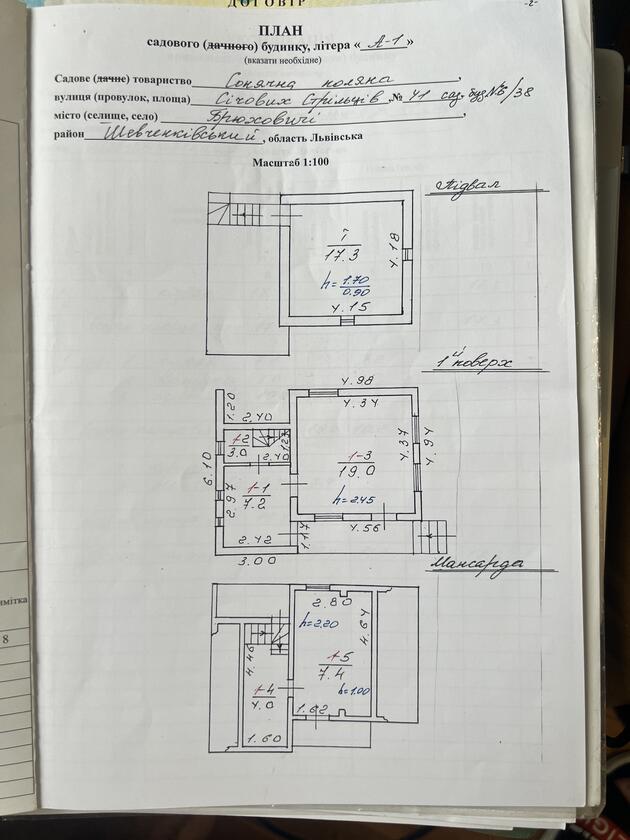 ДОГОВІР
-2-
ПЛАН
садового (дачного) будинку, літера « А-1 »
(вказати необхідне)
Садове (дачне) товариство Сонячна поляна,
вулиця (провулок, площа) Січових Стрільців, № 41 сад. буд №8/38
місто (селище, село) Брюховичі,
район Шевченківський, область Львівська
Масштаб 1:100
Підвал
I
17.3
4.18
h= 1.70
0.90
4.15
1й поверх
4.98
4.34
1.20
2.40
1-2
3.0
1.27
2.40
6.10
1-3
19.0
4.37
4.94
1-1
7.2
2.97
h=2.45
2.42
1.17
4.56
3.00
Мансарда
2.80
h=2.20
4.64
4.46
1-5
7.4
1-4
4.0
h=1.00
1.62
1.60
имітка
8